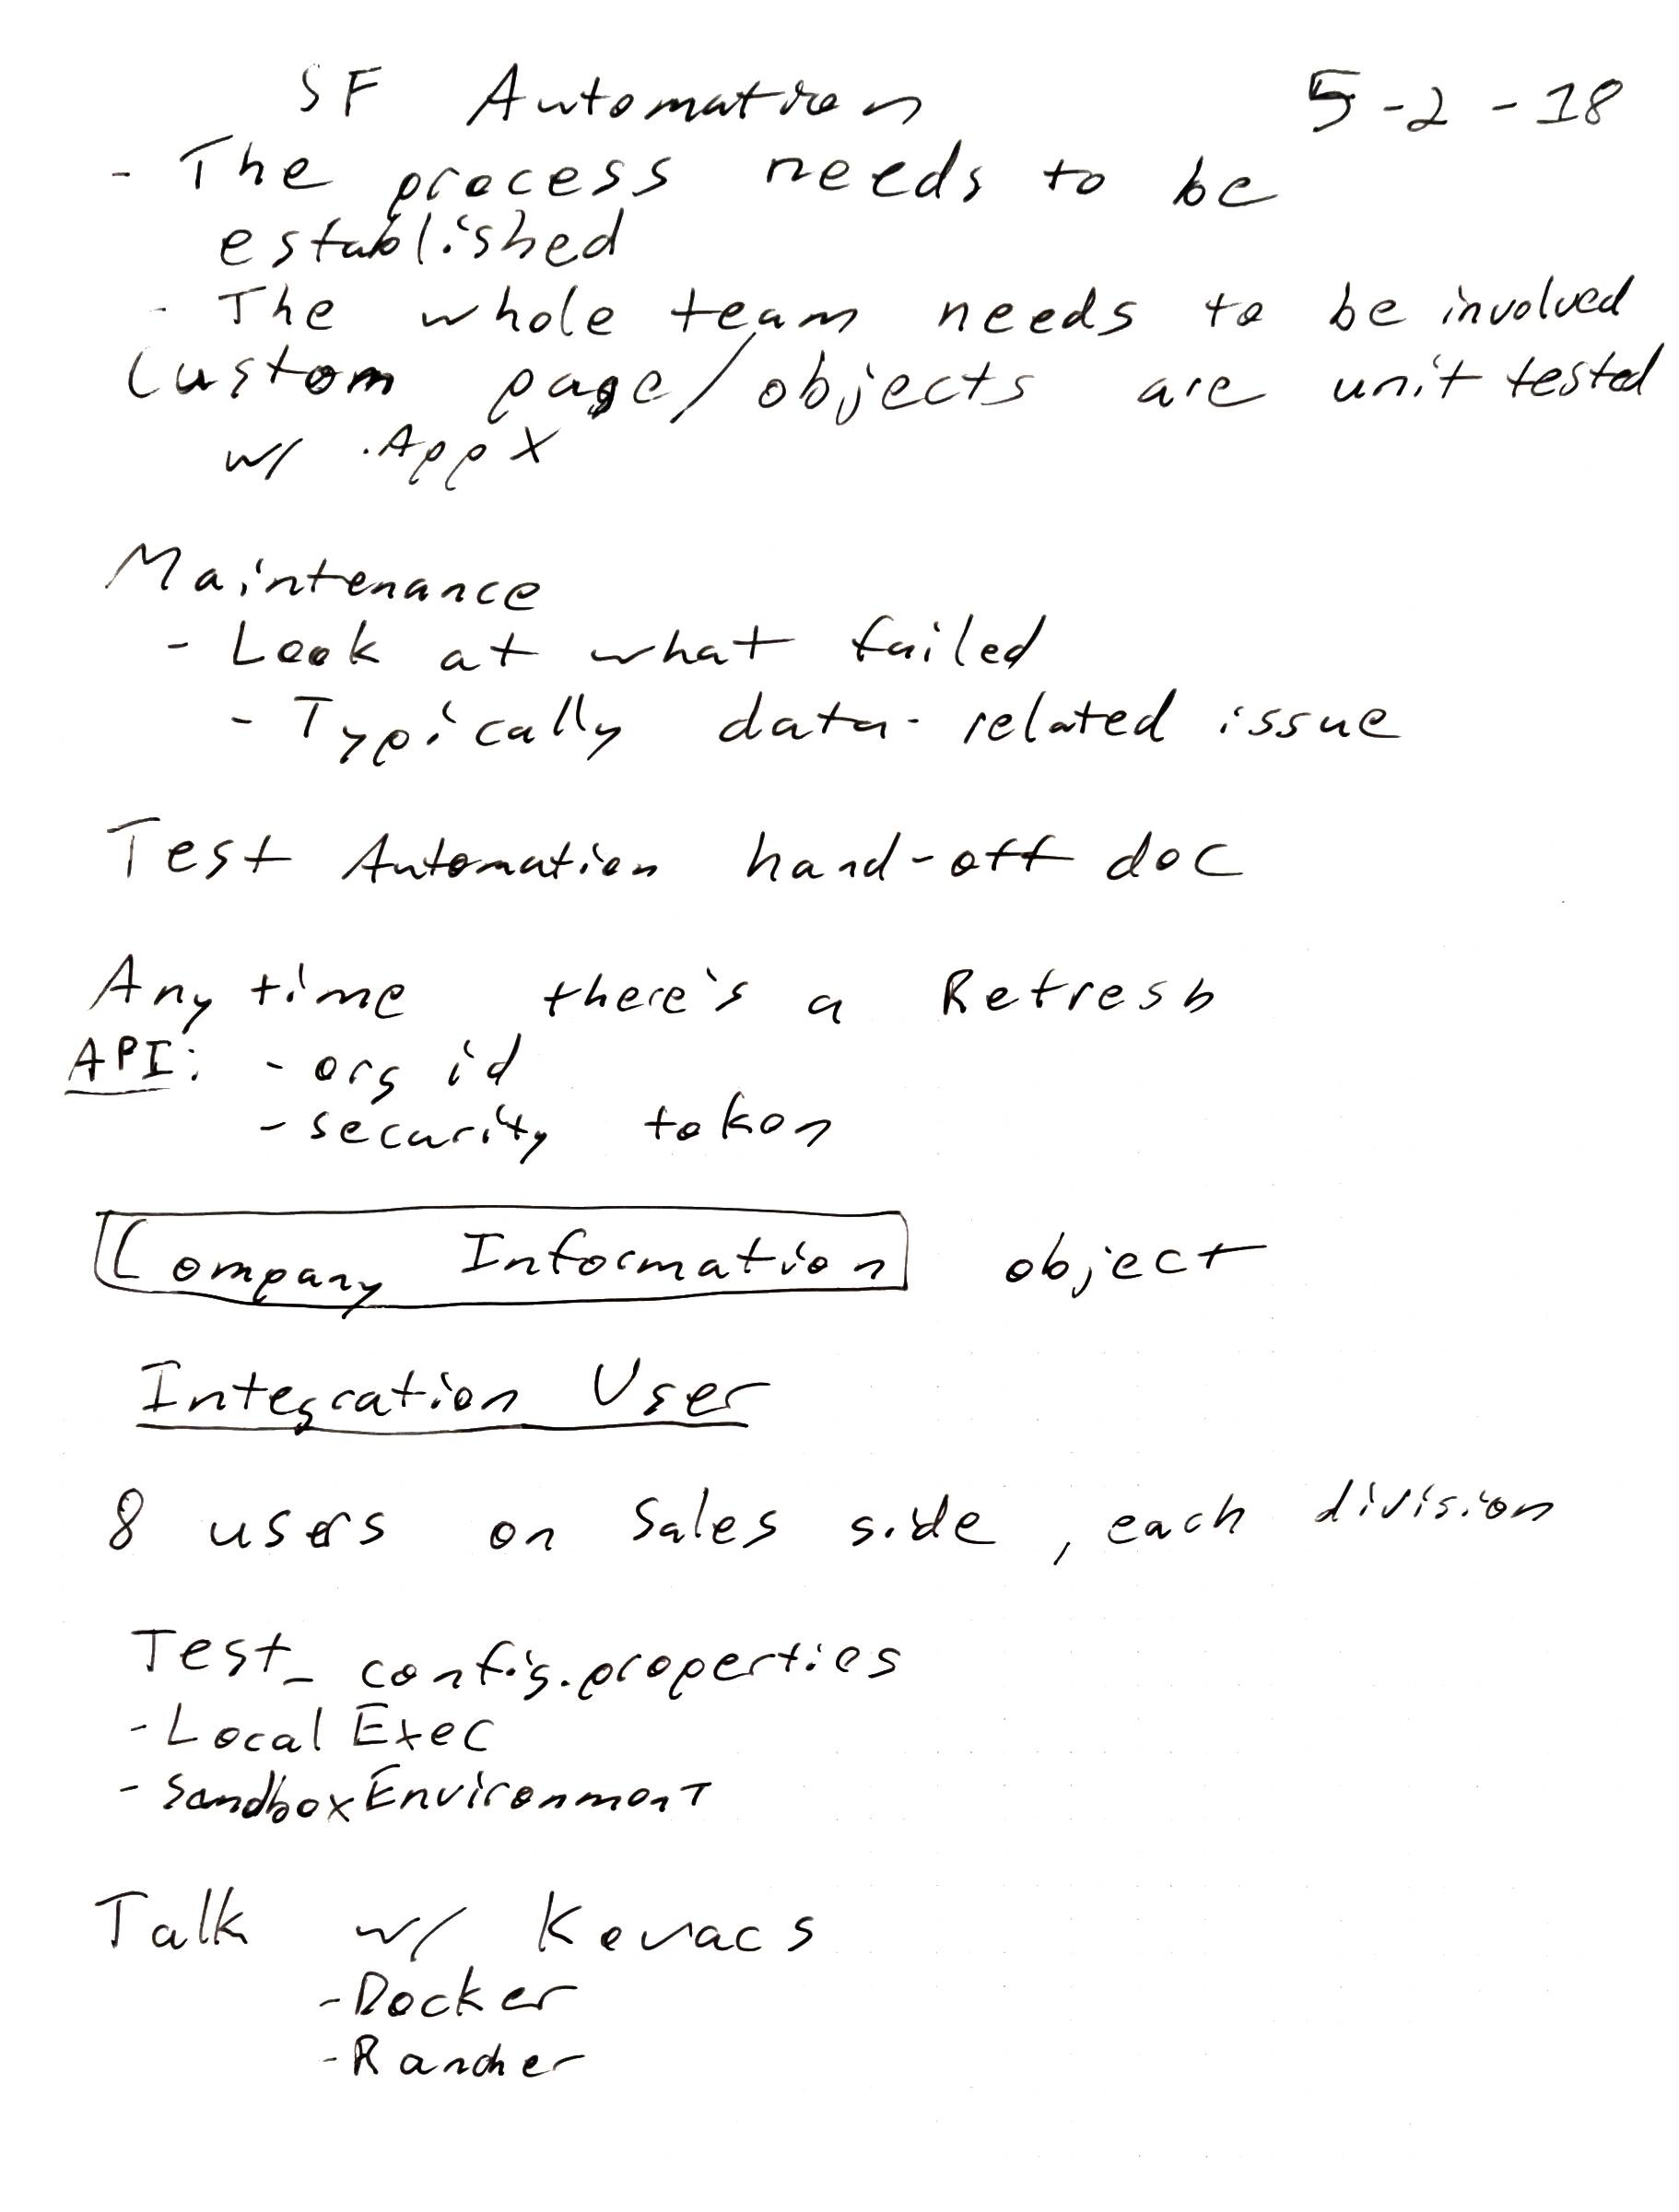 SF Automation 5-2-18
- The process needs to be
established
- The whole team needs to be involved
Custom page/objects are unit tested
w/ .AppX
Maintenance
- Look at what failed
- Typically data-related issue
Test Automation hand-off doc
Any time there's a Refresh
API: - org id
- security token
Company Information object
Integration User
8 users on Sales side, each division
Test_config.properties
- Local Exec
- SandboxEnvironment
Talk w/ Kovacs
- Docker
- Rancher